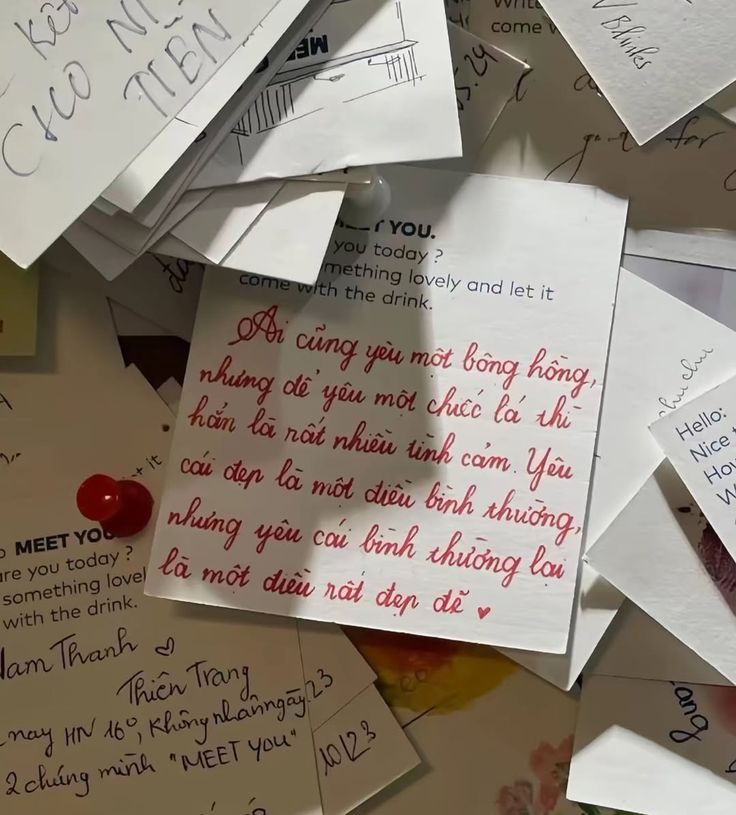 CHO
TIỀN
come
for
Blinks
T YOU.
you today ?
mething lovely and let it
come with the drink.
Ai cũng yêu một bông hồng,
nhưng để yêu một chiếc lá thì
hẳn là rất nhiều tình cảm. Yêu
cái đẹp là một điều bình thường,
nhưng yêu cái bình thường lại
là một điều rất đẹp đẽ ♥
MEET YOU
re you today ?
something lovel
with the drink.
Nam Thanh ♡
Thiên Trang
nay HN 16°, không
2 chúng mình "MEET YOU"
10/23
chuchu
Hello:
Nice
How